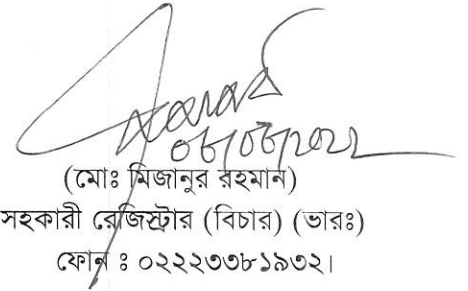 ০৮/০৮/২০২২
(মোঃ মিজানুর রহমান)
সহকারী রেজিস্ট্রার (বিচার) (ভারঃ)
ফোন ঃ ০২২২৩৩৮১৯৩২।